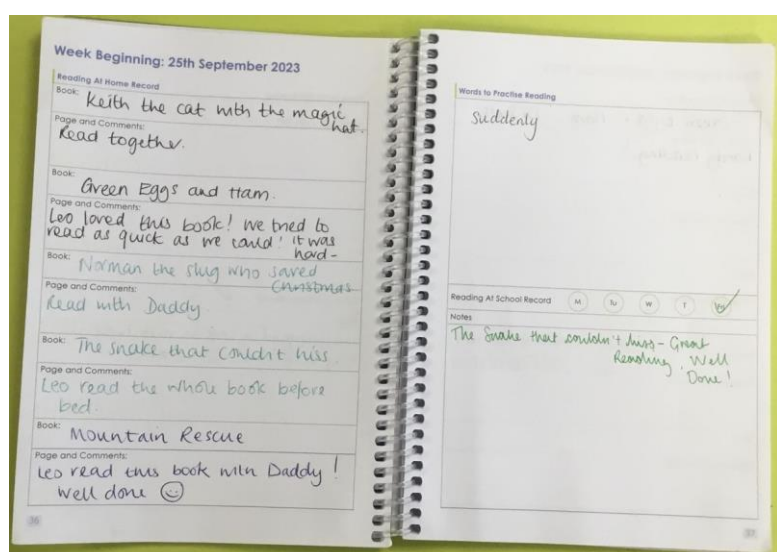 Week Beginning: 25th September 2023
Reading At Home Record
Book: Keith the cat with the magic
hat.
Page and Comments:
Read together.
Book: Green Eggs and Ham.
Page and Comments:
Leo loved this book! We tried to
read as quick as we could! it was
hard-
Book: Norman the slug who saved
Christmas
Page and Comments:
Read with Daddy
Book: The snake that couldn't hiss.
Page and Comments:
Leo read the whole book before
bed.
Book: Mountain Rescue
Page and Comments:
Leo read this book with Daddy!
Well done
36
Words to Practise Reading
suddenly
Reading At School Record M Tu W T
Notes
The Snake that couldn't hiss - Great
Reading, Well
Done!
37